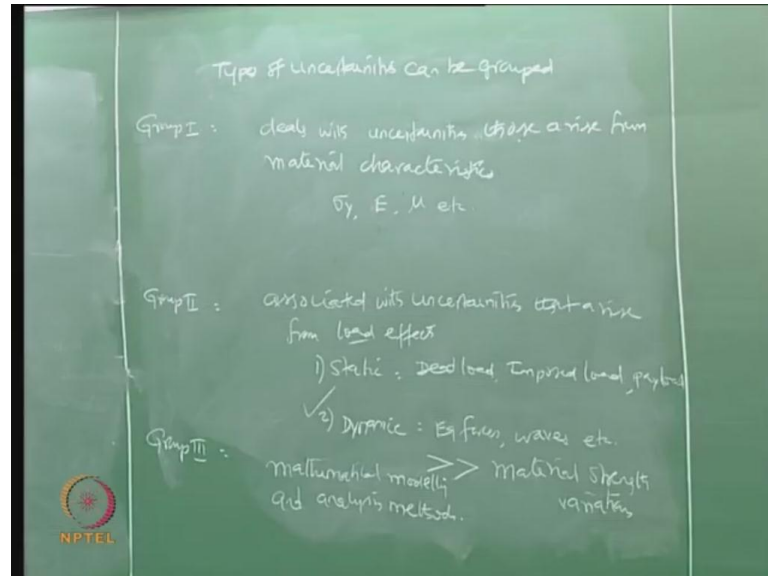 Types of uncertainities can be grouped
Group I : deals with uncertainities those arise from
material characteristics
σy, E, μ etc
Group II : associated with uncertainities that arise
from load effect
1) Static : Dead load, Imposed load, payload
2) Dynamic : Eq forces, waves etc.
Group III : mathematical modelling >> material strength
and analysis methods. variations
NPTEL